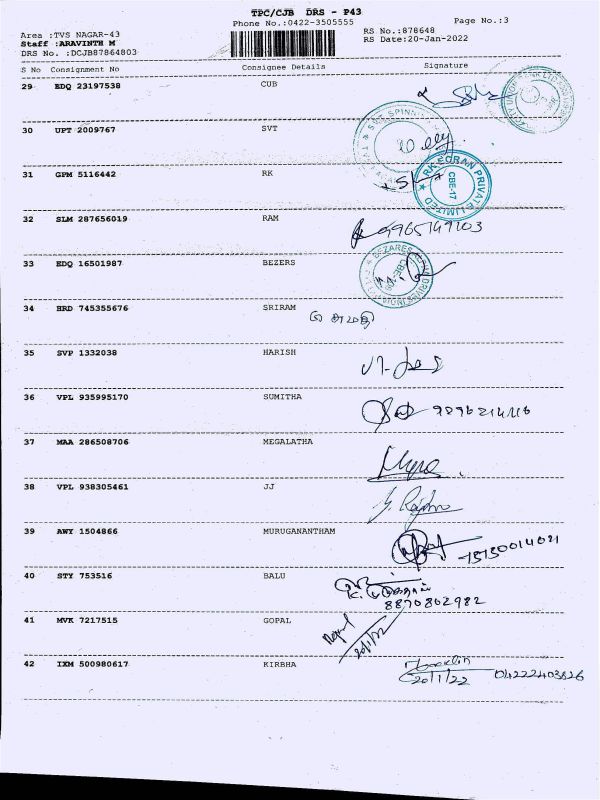 TPC/CJB DRS - P43
Phone No.:0422-3505555
Page No.:3
Area :TVS NAGAR-43
RS No.:878648
Staff :ARAVINTH M
RS Date:20-Jan-2022
DRS No. :DCJB87864803
S No Consignment No Consignee Details Signature
29 EDQ 23197538 CUB
30 UPT 2009767 SVT
31 GPM 5116442 RK
RK EDRAN PRIVATE LIMITED CBE-17
32 SLM 287656019 RAM 9965149103
33 EDQ 16501987 BEZERS
34 HRD 745355676 SRIRAM
35 SVP 1332038 HARISH
36 VPL 935995170 SUMITHA
37 MAA 286508706 MEGALATHA
38 VPL 938305461 JJ
39 AWY 1504866 MURUGANANTHAM
40 STY 753516 BALU
8870802982
41 MVK 7217515 GOPAL
20/1/22
42 IXM 500980617 KIRBHA
20/1/22 04222403826